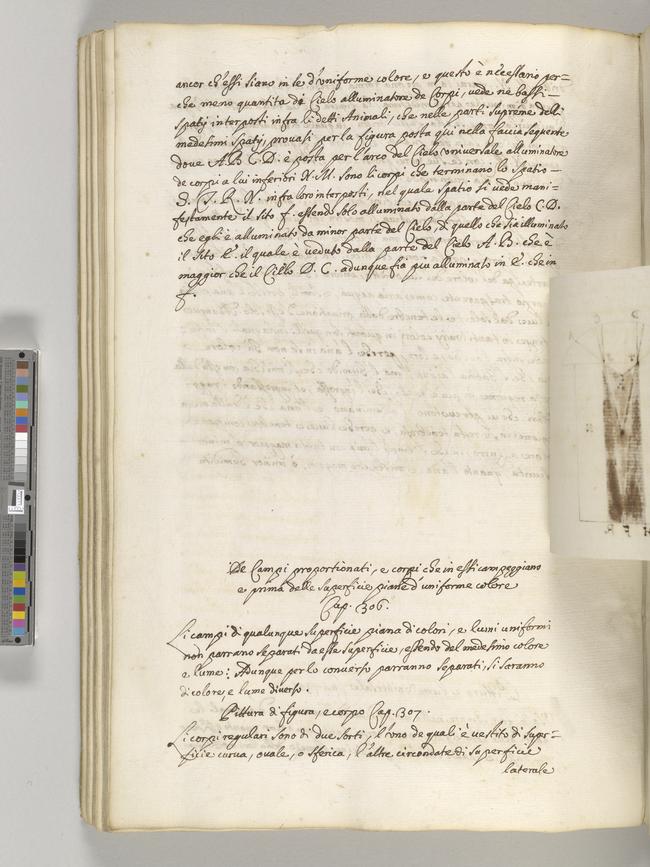 ancor ch'essi siano in se d'uniforme colore, e questo è necessario per=
che meno quantita di Cielo alluminatore de Corpi, uede ne bassi –
spatij interposti infra li detti Animali, che nelle parti supreme delli
medesimi spatij, prouasi per la figura posta qui nella faccia seguente
doue A. B. C. D. è posta per l'arco del Cielo vniuersale alluminatore
de corpi a lui inferiori N. M. sono li corpi che terminano lo spatio –
infra loro interposti, nel quale spatio si uede mani=
festamente il sito f. essendo solo alluminato dalla parte del Cielo C. D.
che egli è alluminato da minor parte del Cielo, di quello che sia illuminato
il sito E. il quale è ueduto dalla parte del Cielo A. B. che è
maggior che il Cielo D. C. adunque fia piu alluminato in E. che in
f.
De Campi proportionati, e corpi che in essi campeggiano
e prima delle superficie piane d'uniforme colore
Cap. 306.
Li campi di qualunque superficie piana di colori, e lumi uniformi
non parrano separati da esse superficie, essendo del medesimo colore
e lume: Adunque per lo conuerso parranno separati, si saranno
di colore, e lume diuerso.
Pittura di figura, e corpo Cap. 307.
Li corpi regulari sono di due sorti, l'vno de quali è uestito di super=
ficie curua, ouale, o sferica, l'altre circondate di superficie
laterale